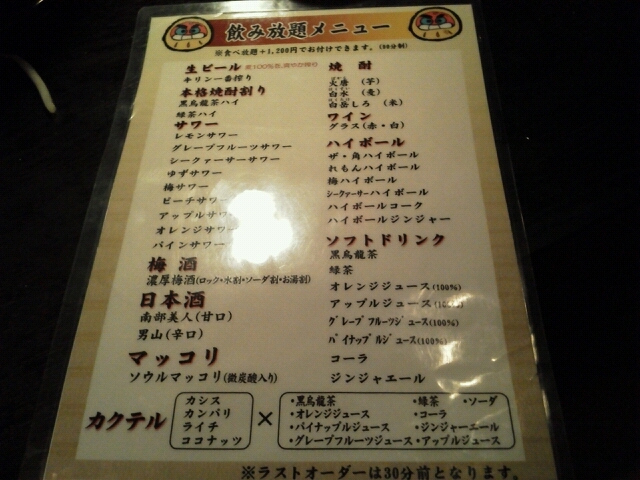 飲み放題メニュー
※食べ放題+1,200円でお付けできます。(90分制)
生ビール
キリン一番搾り
本格焼酎割り
黒烏龍茶ハイ
緑茶ハイ
サワー
レモンサワー
グレープフルーツサワー
シークァーサーサワー
ゆずサワー
梅サワー
ピーチサワー
アップルサワー
オレンジサワー
パインサワー
梅酒
濃厚梅酒(ロック・水割・ソーダ割・お湯割)
日本酒
南部美人(甘口)
男山(辛口)
マッコリ
ソウルマッコリ(微炭酸入り)
焼酎
(芋)
白水 (麦)
白岳しろ (米)
ワイン
グラス(赤・白)
ハイボール
ザ・角ハイボール
れもんハイボール
梅ハイボール
シークァーサーハイボール
ハイボールコーク
ハイボールジンジャー
ソフトドリンク
黒烏龍茶
緑茶
オレンジジュース(100%)
アップルジュース(100%)
グレープフルーツジュース(100%)
パイナップルジュース(100%)
コーラ
ジンジャエール
カクテル
カシス
カンパリ
ライチ
ココナッツ
×
・黒烏龍茶 ・緑茶 ・ソーダ
・オレンジジュース ・コーラ
・パイナップルジュース ・ジンジャーエール
・グレープフルーツジュース ・アップルジュース
※ラストオーダーは30分前となります。